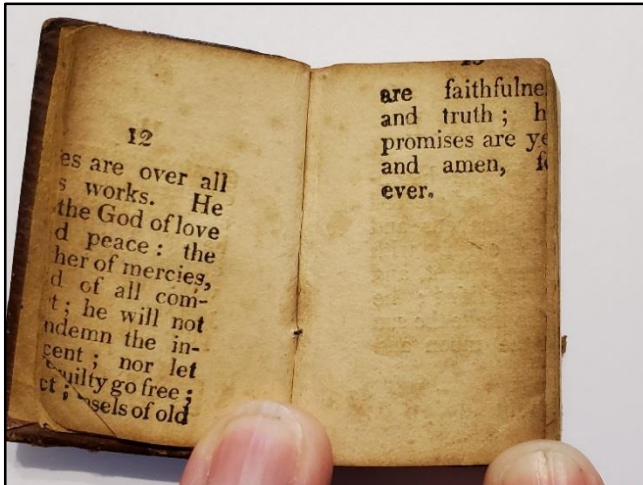 12
es are over all
s works. He
the God of love
d peace : the
her of mercies,
d of all com-
t ; he will not
ndemn the in-
cent ; nor let
uilty go free ;
ct ; nsels of old
13
are faithfulne
and truth ; h
promises are ye
and amen, fo
ever.